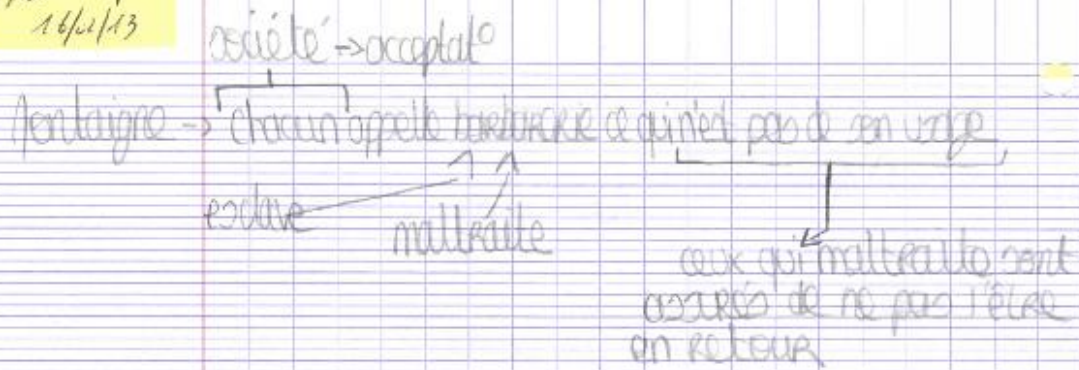 16/11/13
société -> acceptat°
Montaigne -> chacun appelle barbarie ce qui n'est pas de son usage
esclave
maltraite
ceux qui maltraite sont
assurés de ne pas l'être
en retour